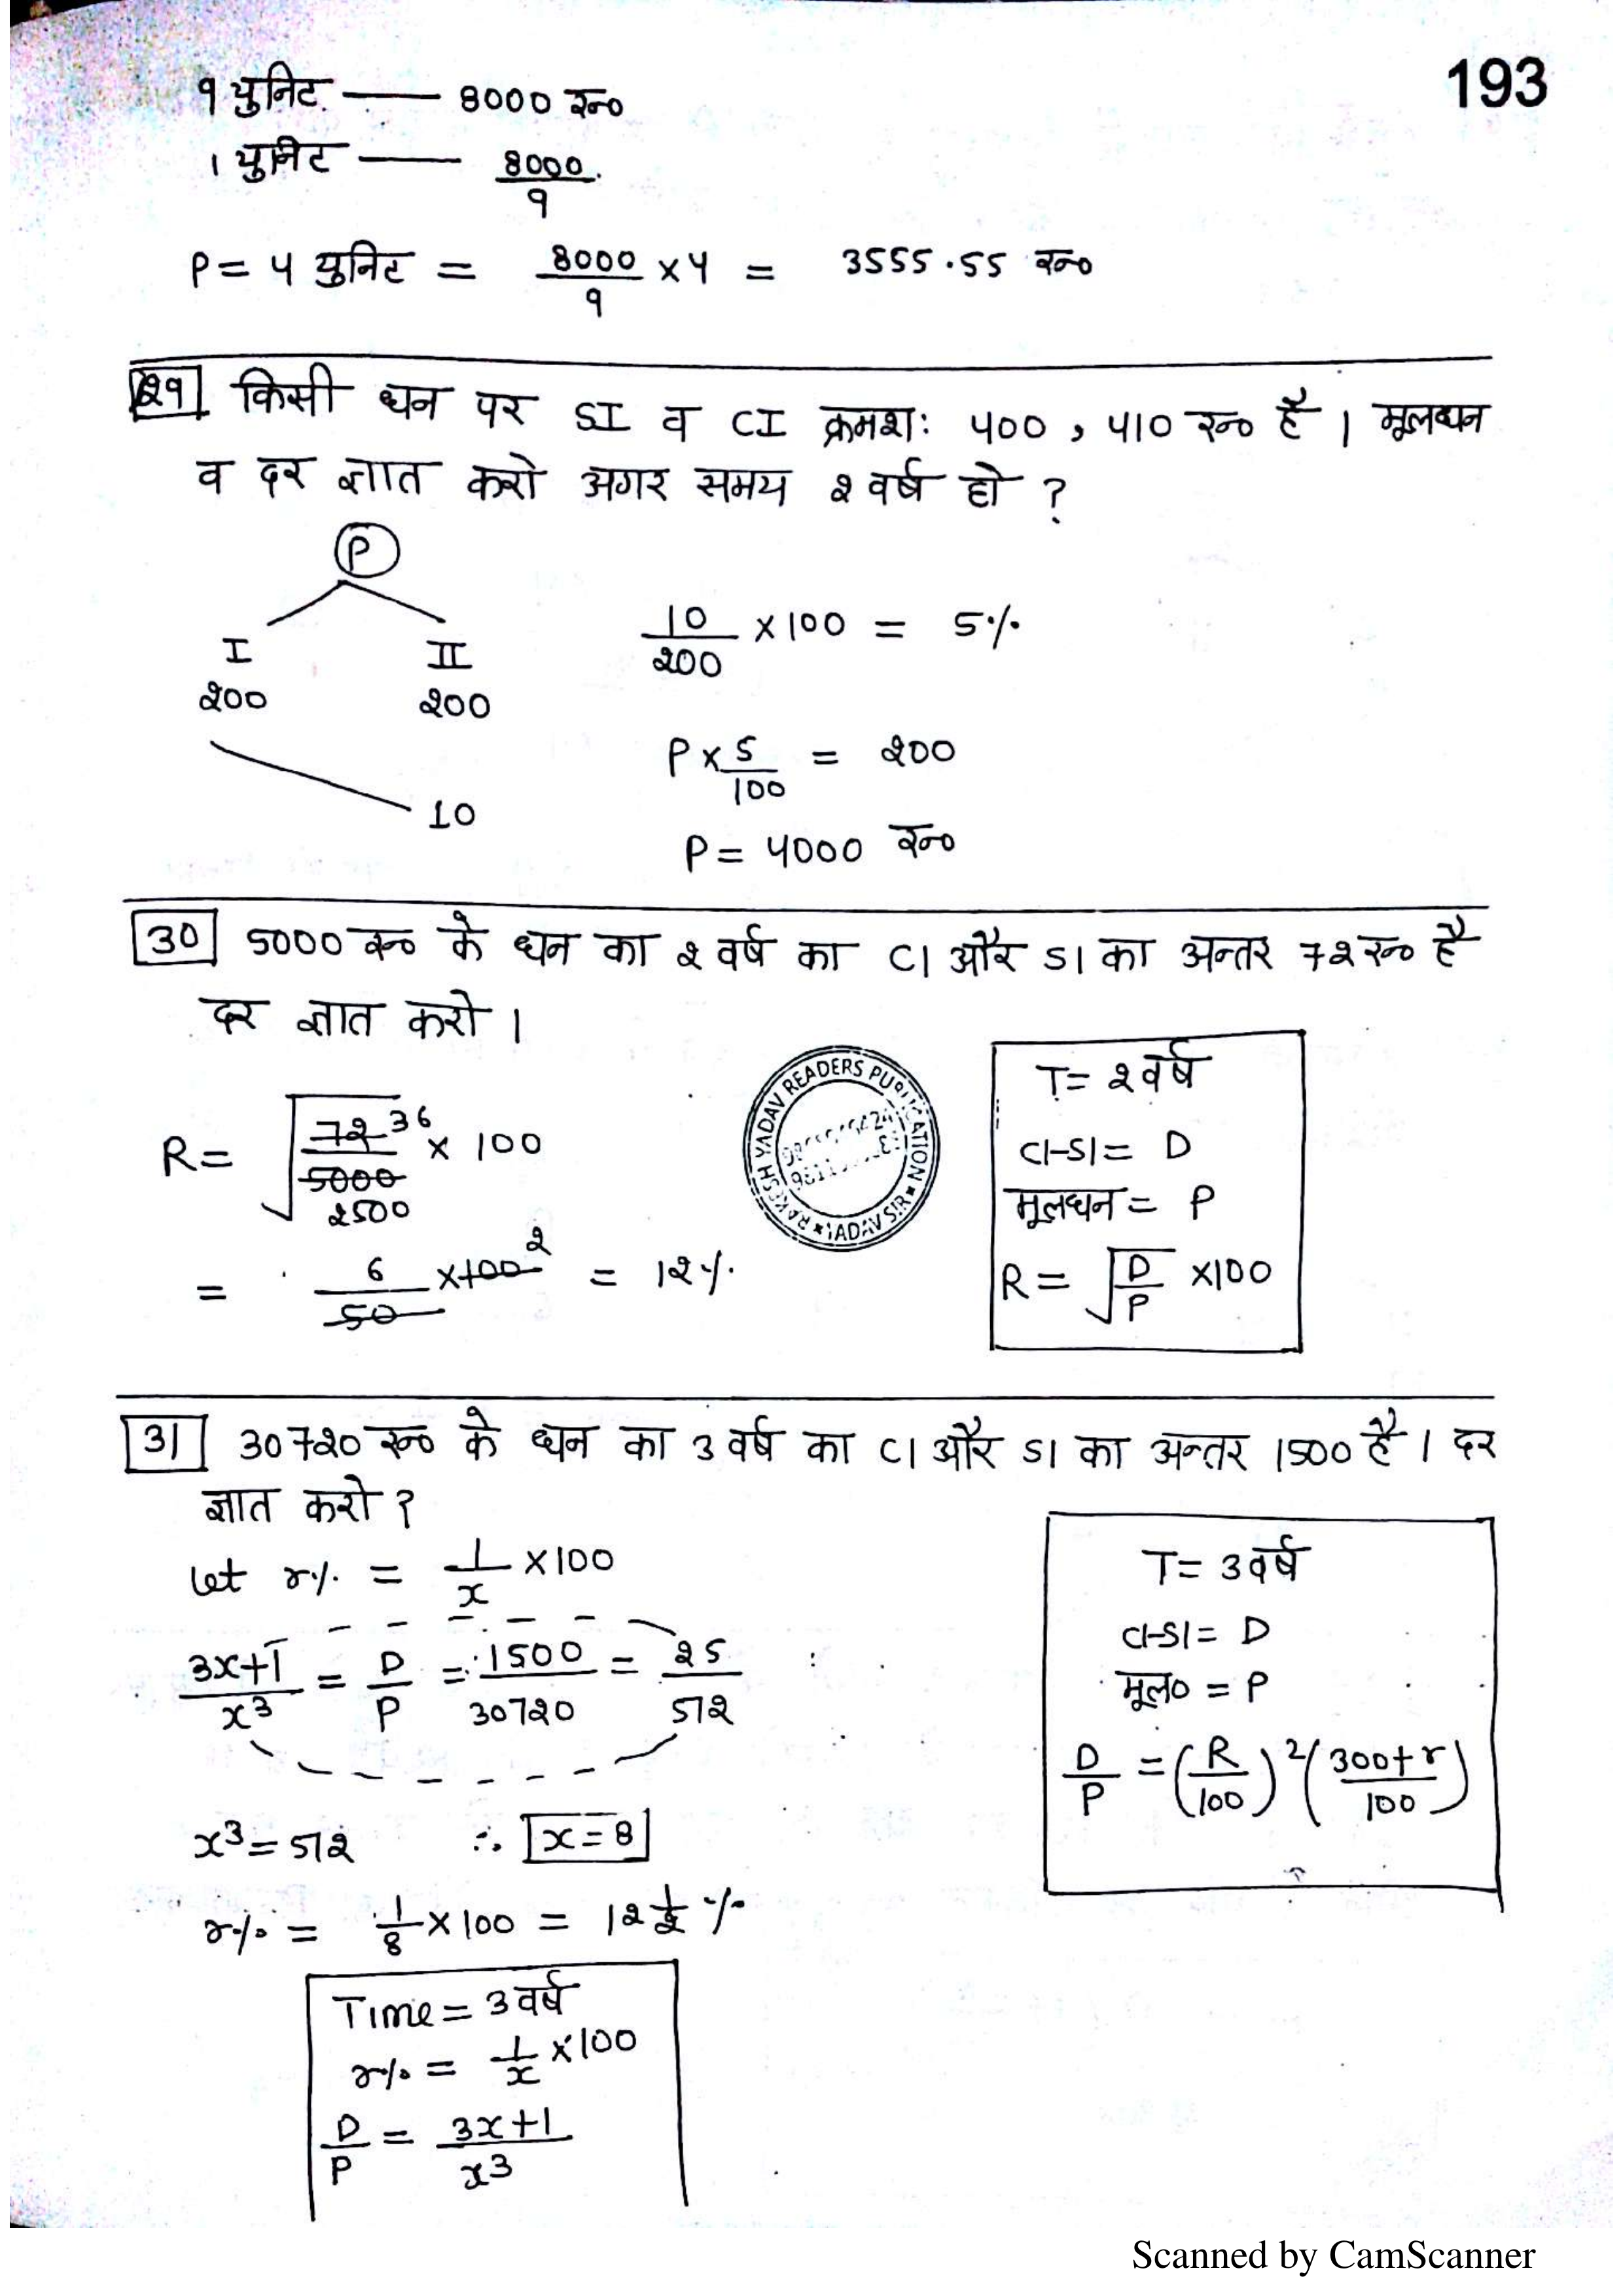 193
9 युनिट — 8000 रू०
1 युनिट — 8000/9
P = 4 युनिट = 8000/9 × 4 = 3555.55 रू०
29 किसी धन पर SI व CI क्रमशः 400, 410 रू० है। मूलधन
व दर ज्ञात करो अगर समय 2 वर्ष हो ?
P
I II
200 200
10
10/200 × 100 = 5%
P × 5/100 = 200
P = 4000 रू०
30 5000 रू० के धन का 2 वर्ष का CI और SI का अन्तर 72 रू० है
दर ज्ञात करो।
R = √(72/5000) × 100
36
2500
= 6/50 × 100 = 12%
2
RAKESH YADAV READERS PUBLICATION
YADAV SIR
T = 2 वर्ष
CI-SI = D
मूलधन = P
R = √(D/P) × 100
31 30720 रू० के धन का 3 वर्ष का CI और SI का अन्तर 1500 है। दर
ज्ञात करो ?
let r% = 1/x × 100
3x+1/x³ = D/P = 1500/30720 = 25/512
x³ = 512 ∴ x = 8
r% = 1/8 × 100 = 12 1/2 %
T = 3 वर्ष
CI-SI = D
मूल० = P
D/P = (R/100)² (300+r/100)
Time = 3 वर्ष
r% = 1/x × 100
D/P = 3x+1/x³
Scanned by CamScanner